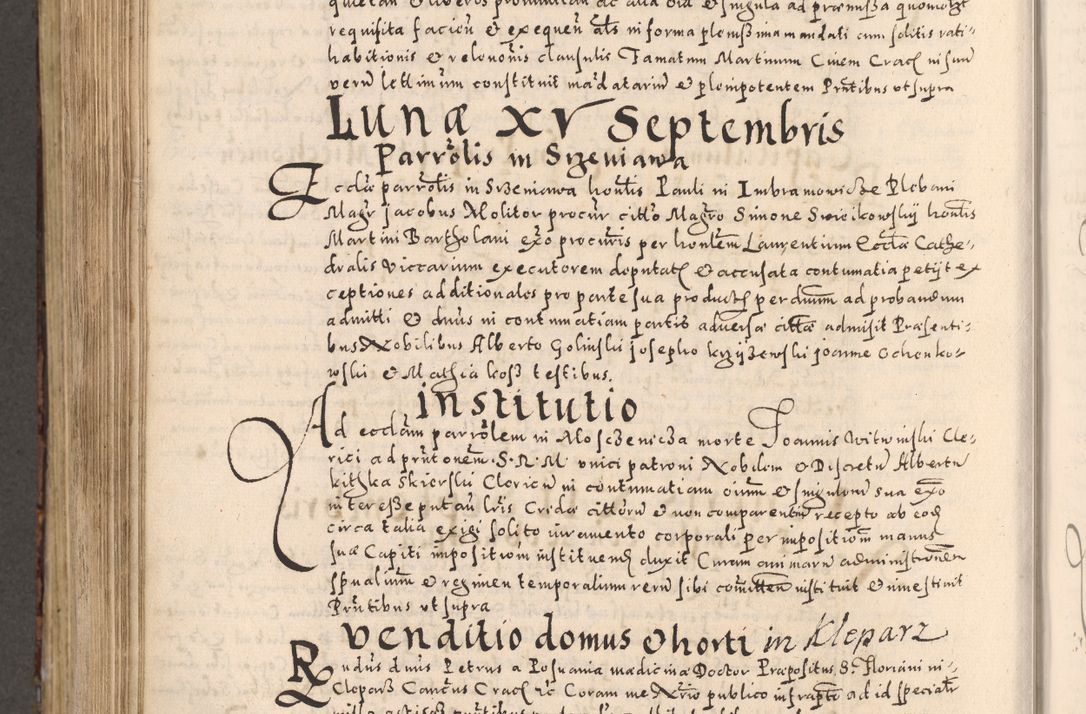 requisita facien̄ & exequen̄ als in forma plenissima mandati cum solitis rati-
habitionis & relevōnis clausulis Famatum Martinum Civem Crac̄ in suū
verū lettimūm constituit mādatariū & plenipotentem Prn̄tibus ut supra
Lunæ XV Septembris
Parrōlis in Srzeniawa
Ecclæ parrōlis in Srzeniawa honlīs Pauli in Imbramowicze Plebani
Magr̄ Jacobus Molitor procūr cittō Magrō Simone Swiecikowskij honlīs
Martini Bartholani ex̄o procūris per honlēm Laurentium Ecclæ Cathe-
dralis Viccarium executorem deputat̄ & accusata contumatia petijt ex
ceptiones additionales pro parte sua product̄ per dnūm ad probandum
admitti & dnūs in contumatiam partis adversæ cittæ admisit Præsenti-
bus Nobilibus Alberto Goliński Josepho Krzyżewski Joanne Ochenko-
wski & Mathia Kosz testibus.
Institutio
Ad ecclām parrōlem in Moszczenicza morte Joannis Witwiński Cle-
rici ad prn̄tonēm S. R. M. unici patroni Nobilem & Discretū Albertū
Skierski Clericū in contumatiam oīum & singulorū sua ex̄o
interesse putan̄ lrīs Cridæ cittorū & non comparentiū recepto ab eod̄
circa talia exigi solito iuramento corporali per impositionem manus
suæ Capiti impositiom instituend̄ duxit Curam animarū administrōnem
sp̄ualium & regimen temporalium rerū sibi comitten̄ instituit & investivit
Prn̄tibus ut supra
Venditio domus & horti in Kleparz
Rn̄dus dnūs Petrus a Posnania medicinæ Doctor Præpositus S. Floriani in
Cleparz Can̄cus Crac̄ &c Coram me Nrīo publico infrap̄to ad id specialr̄